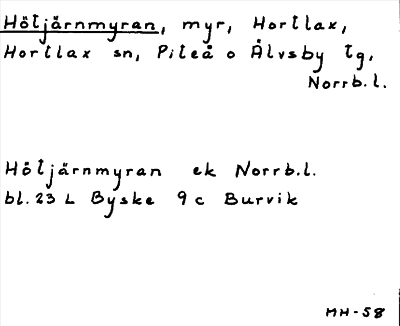 Hötjärnmyran, myr, Hortlax,
Hortlax sn, Piteå o Älvsby tg,
Norrb.l.
Hötjärnmyran ek Norrb.l.
bl. 23 L Byske 9 c Burvik
MH-58